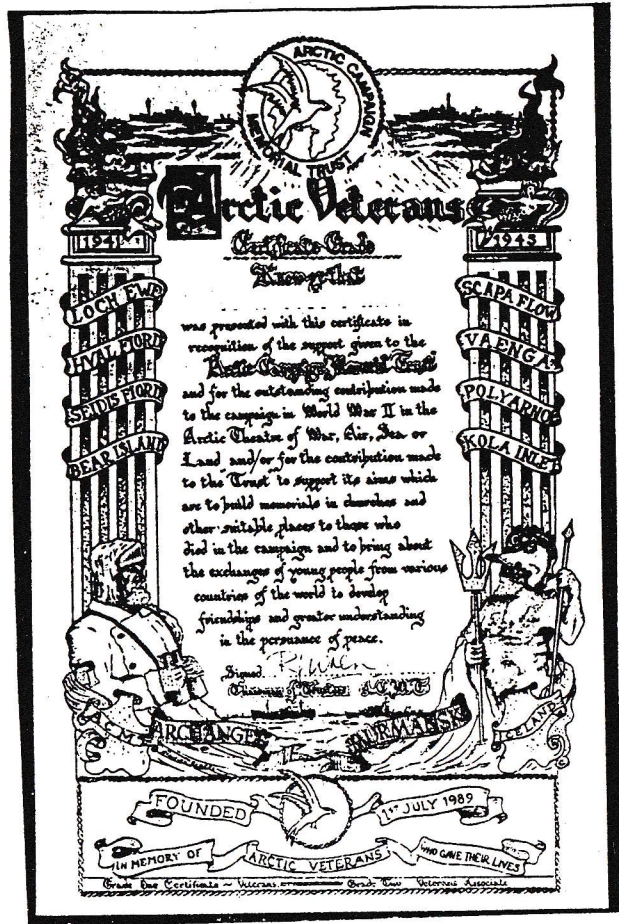 ARCTIC CAMPAIGN
MEMORIAL TRUST
Arctic Veterans
Certificate Grade
Know ye that
1941
1945
LOCH EWE
HVALFIORD
SEIDISFIORD
BEAR ISLAND
SCAPA FLOW
VAENGA
POLYARNO
KOLA INLET
was presented with this certificate in
recognition of the support given to the
Arctic Campaign Memorial Trust
and for the outstanding contribution made
to the campaign in World War II in the
Arctic Theatre of War, Air, Sea or
Land and/or for the contribution made
to the Trust to support its aims which
are to build memorials in churches and
other suitable places to those who
died in the campaign and to bring about
the exchanges of young people from various
countries of the world to develop
friendships and greater understanding
in the persuance of peace.
Signed
Chairman of Trustees A.C.M.T
A.C.M.T
ARCHANGEL
MURMANSK
ICELAND
FOUNDED
1ST JULY 1989
IN MEMORY OF ARCTIC VETERANS WHO GAVE THEIR LIVES
Grade One Certificate ~ Veterans Grade Two Veterans Associate